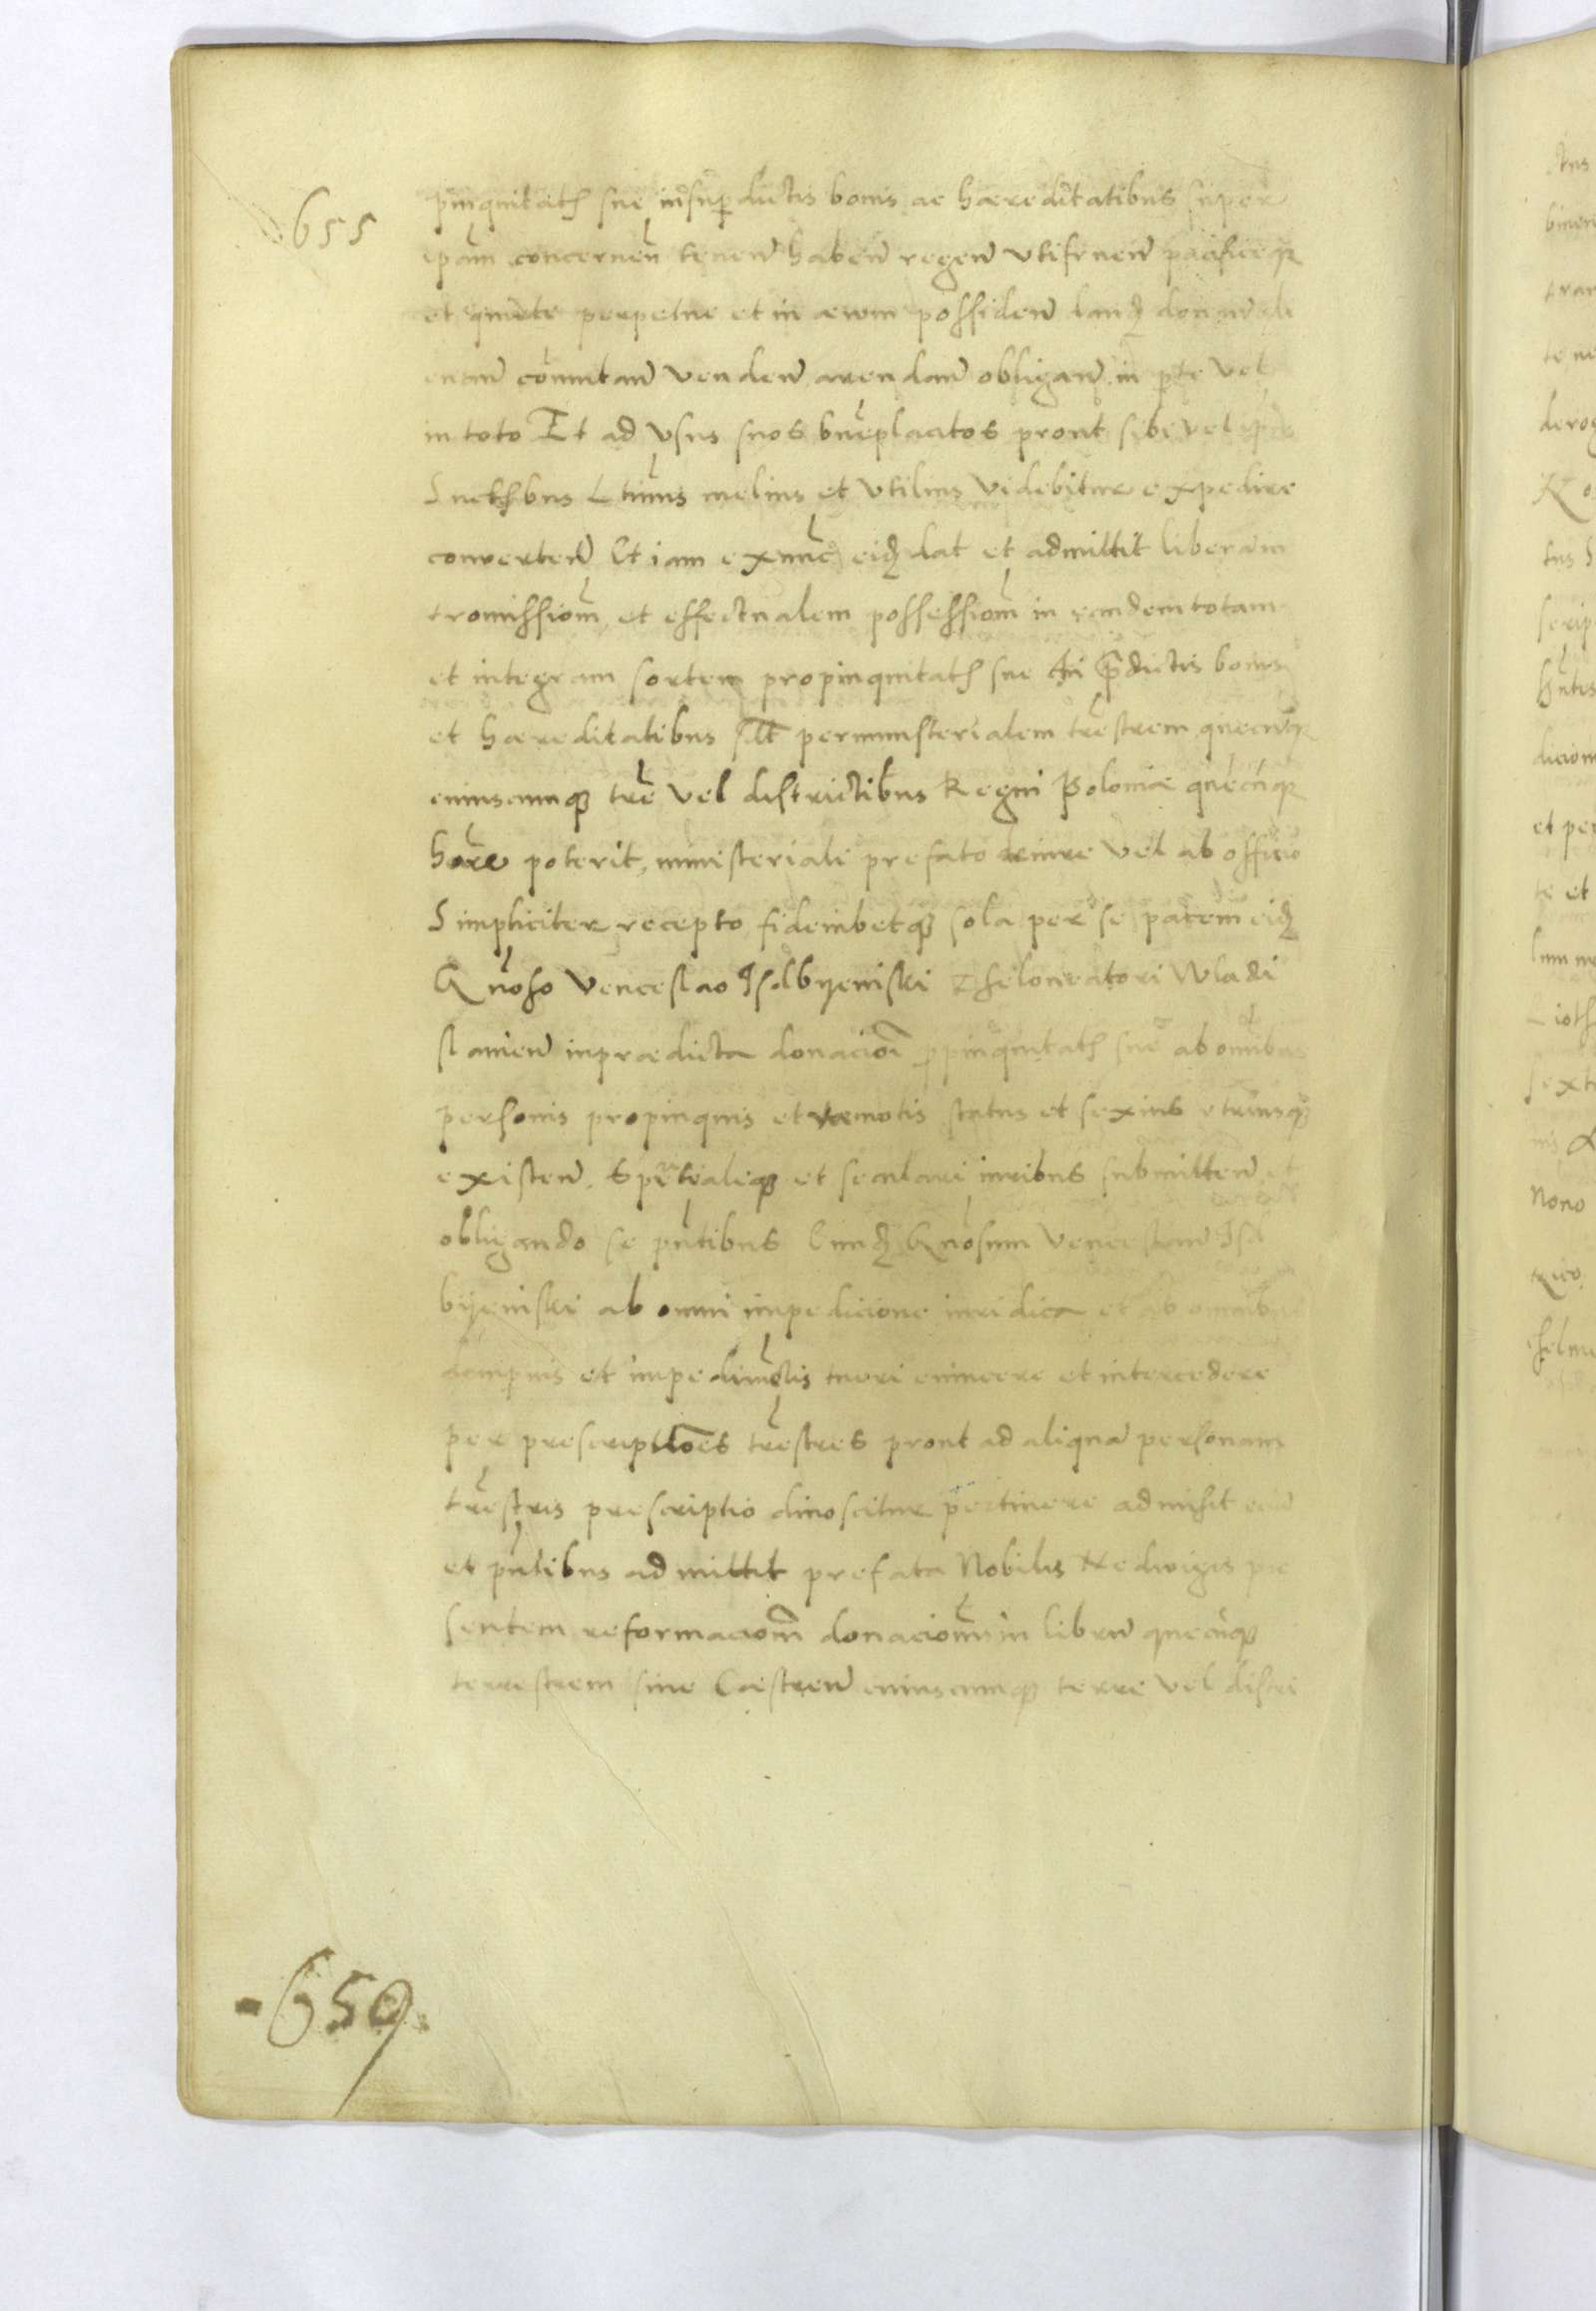 655
ppinquitatis sue in suprdictis bonis ac hæreditatibus super
ipam concernen tenen haben regen utifruen pacificeque
et quiete perpetue et in aevum possiden
comutan venden arendan obligan in parte vel
in toto Et ad vsus suos bneplacitos prout sibi vel ipsis
Sucessbus Ltimis melius et vtilius videbitur expedire
converten Et iam exnunc eidem dat et admittit liberam
tromissiom et effectualem possessiom in eandem totam
et integram sortem propinquitatis sue in prædictis bonis
et hæreditatibus per ministerialem trestrem quecunque
cuiuscumque tre vel districtibus Regni Poloniæ quecunque
hare poterit, ministeriali prefato iure vel ab officio
Simpliciter recepto fideiubetque sola per se eidem
Gnoso Venceslao Isdbyeniski Theloneatori Wladi
slavien in prædicta donaciõe ppinquitatis sue ab omibus
personis propinquis et remotis status et sexius vtriusque
existen. Spiritualique et seculari iuribus submitten et
obligando se pntibus Eundem Gnosum Venceslaum Isd
byeniski ab omni impedicione iuridica et ab omnibus
dampnis et impedimētis tueri euincere et intercedere
per prescriptiões trestres prout ad aliquã personam
trestris prescriptio dinoscitur pertinere admisit
et pntibus admittit prefata Nobilis Hedwigis pre
sentem reformaciom donaciomm in librũ quecunque
terrestrem siue Castren cuiuscumque terre vel distri
-659.